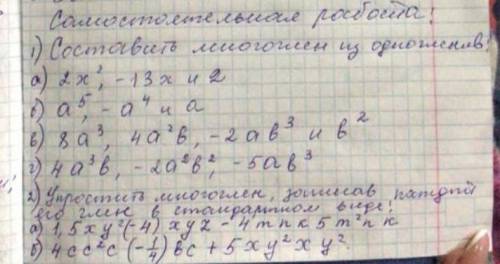 Самостоятельная работа!
1) Составить многочлен из одночленов!
а) 2x², -13x и 2
б) a⁵, -a⁴ и a
в) 8a³, 4a²b, -2ab³ и b²
г) 4a³b, -2a²b², -5ab³
2) Упростить многочлен, записав каждый
его член в стандартном виде!
а) 1,5xy²(-4)xyz - 4mnk5m²nk
б) 4cc²c(-1/4)bc + 5xy²xy²